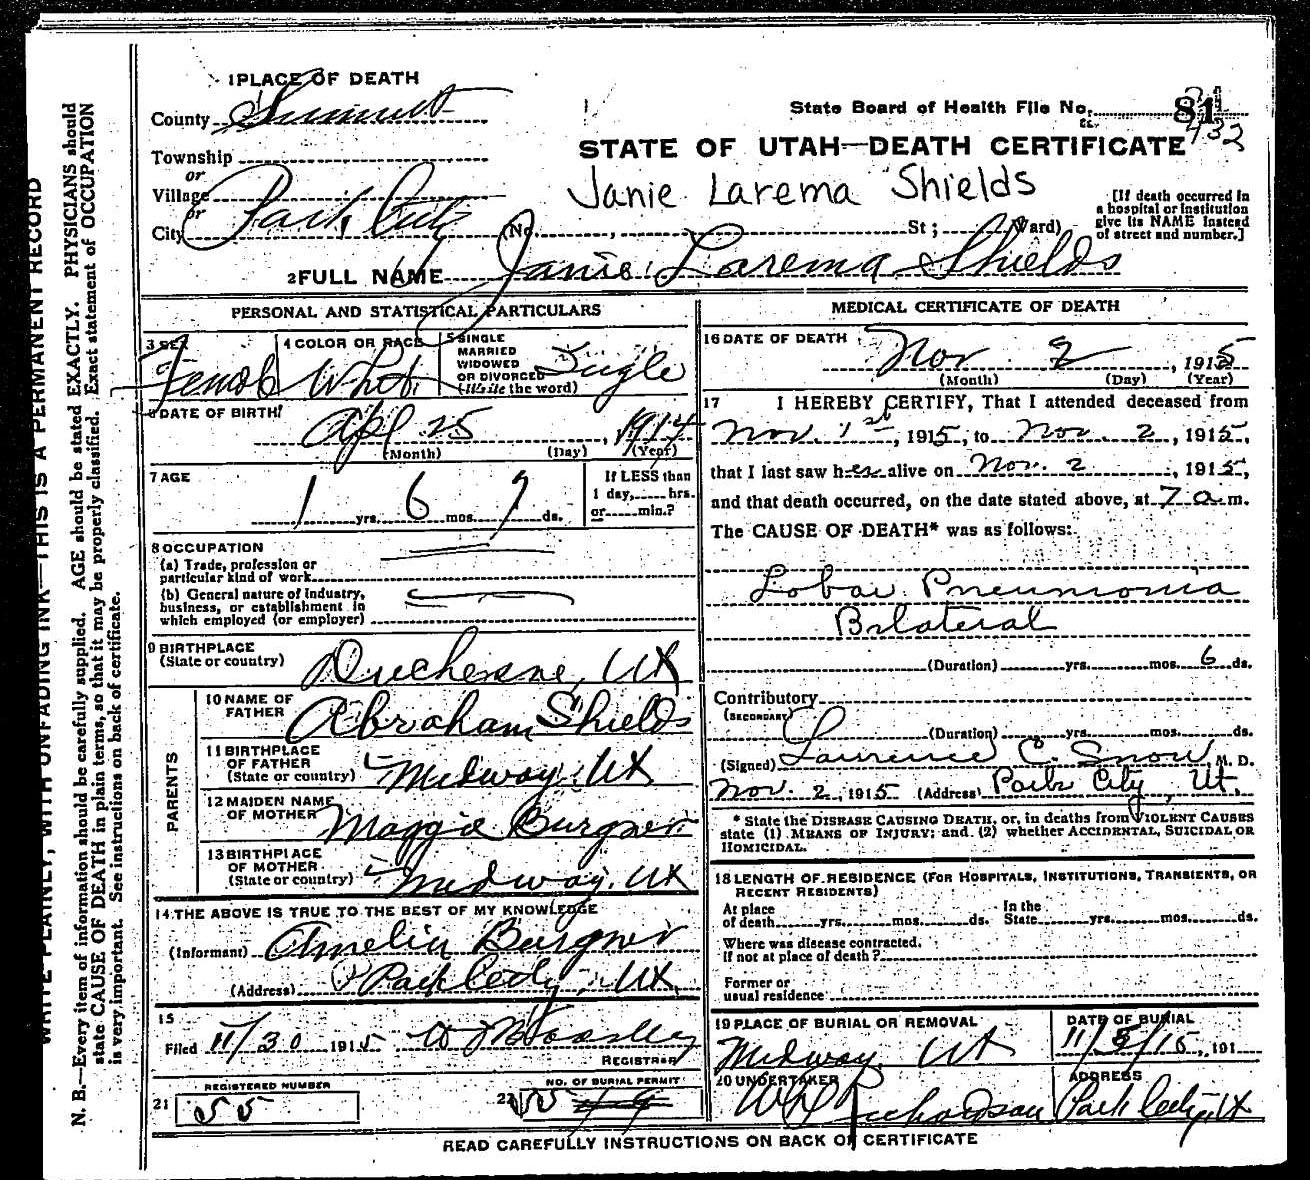 1 PLACE OF DEATH
County Summit
Township
or
Village
or
City Park City
State Board of Health File No. 81
432
STATE OF UTAH—DEATH CERTIFICATE
Janie Larema Shields
(No. , St ; Ward)
[If death occurred in
a hospital or institution
give its NAME instead
of street and number.]
2 FULL NAME Janie Larema Shields
PERSONAL AND STATISTICAL PARTICULARS
3 SEX
Female
4 COLOR OR RACE
White
5 SINGLE
MARRIED
WIDOWED
OR DIVORCED
(Write the word)
Single
6 DATE OF BIRTH
Apl 25, 1914
(Month) (Day) (Year)
7 AGE
1 yrs. 6 mos. 7 ds.
If LESS than
1 day, hrs.
or min.?
8 OCCUPATION
(a) Trade, profession or
particular kind of work
(b) General nature of industry,
business, or establishment in
which employed (or employer)
9 BIRTHPLACE
(State or country)
Duchesne, Ut
PARENTS
10 NAME OF
FATHER
Abraham Shields
11 BIRTHPLACE
OF FATHER
(State or country)
Midway, Ut
12 MAIDEN NAME
OF MOTHER
Maggie Burgner
13 BIRTHPLACE
OF MOTHER
(State or country)
Midway, Ut
14 THE ABOVE IS TRUE TO THE BEST OF MY KNOWLEDGE
(Informant) Amelia Burgner
(Address) Park City, Ut.
15
Filed 11/30 1915
REGISTRAR
REGISTERED NUMBER
21 55
NO. OF BURIAL PERMIT
22 55
MEDICAL CERTIFICATE OF DEATH
16 DATE OF DEATH
Nov 2, 1915
(Month) (Day) (Year)
17 I HEREBY CERTIFY, That I attended deceased from
Nov. 1st, 1915, to Nov. 2, 1915,
that I last saw her alive on Nov. 2, 1915,
and that death occurred, on the date stated above, at 7 a. m.
The CAUSE OF DEATH* was as follows:
Lobar Pneumonia
Bilateral
(Duration) yrs. mos. 6 ds.
Contributory
(SECONDARY)
(Duration) yrs. mos. ds.
(Signed) Laurence C. Snow, M. D.
Nov. 2, 1915 (Address) Park City, Ut.
* State the DISEASE CAUSING DEATH, or, in deaths from VIOLENT CAUSES
state (1) MEANS OF INJURY; and (2) whether ACCIDENTAL, SUICIDAL OR
HOMICIDAL.
18 LENGTH OF RESIDENCE (FOR HOSPITALS, INSTITUTIONS, TRANSIENTS, OR
RECENT RESIDENTS)
At place
of death yrs. mos. ds.
In the
State yrs. mos. ds.
Where was disease contracted,
if not at place of death?
Former or
usual residence
19 PLACE OF BURIAL OR REMOVAL
Midway, Ut
DATE OF BURIAL
11/3/15, 191
20 UNDERTAKER
Richardson
ADDRESS
Park City, Ut
READ CAREFULLY INSTRUCTIONS ON BACK OF CERTIFICATE
WRITE PLAINLY, WITH UNFADING INK—THIS IS A PERMANENT RECORD
N. B.—Every item of information should be carefully supplied. AGE should be stated EXACTLY. PHYSICIANS should
state CAUSE OF DEATH in plain terms, so that it may be properly classified. Exact statement of OCCUPATION
is very important. See instructions on back of certificate.